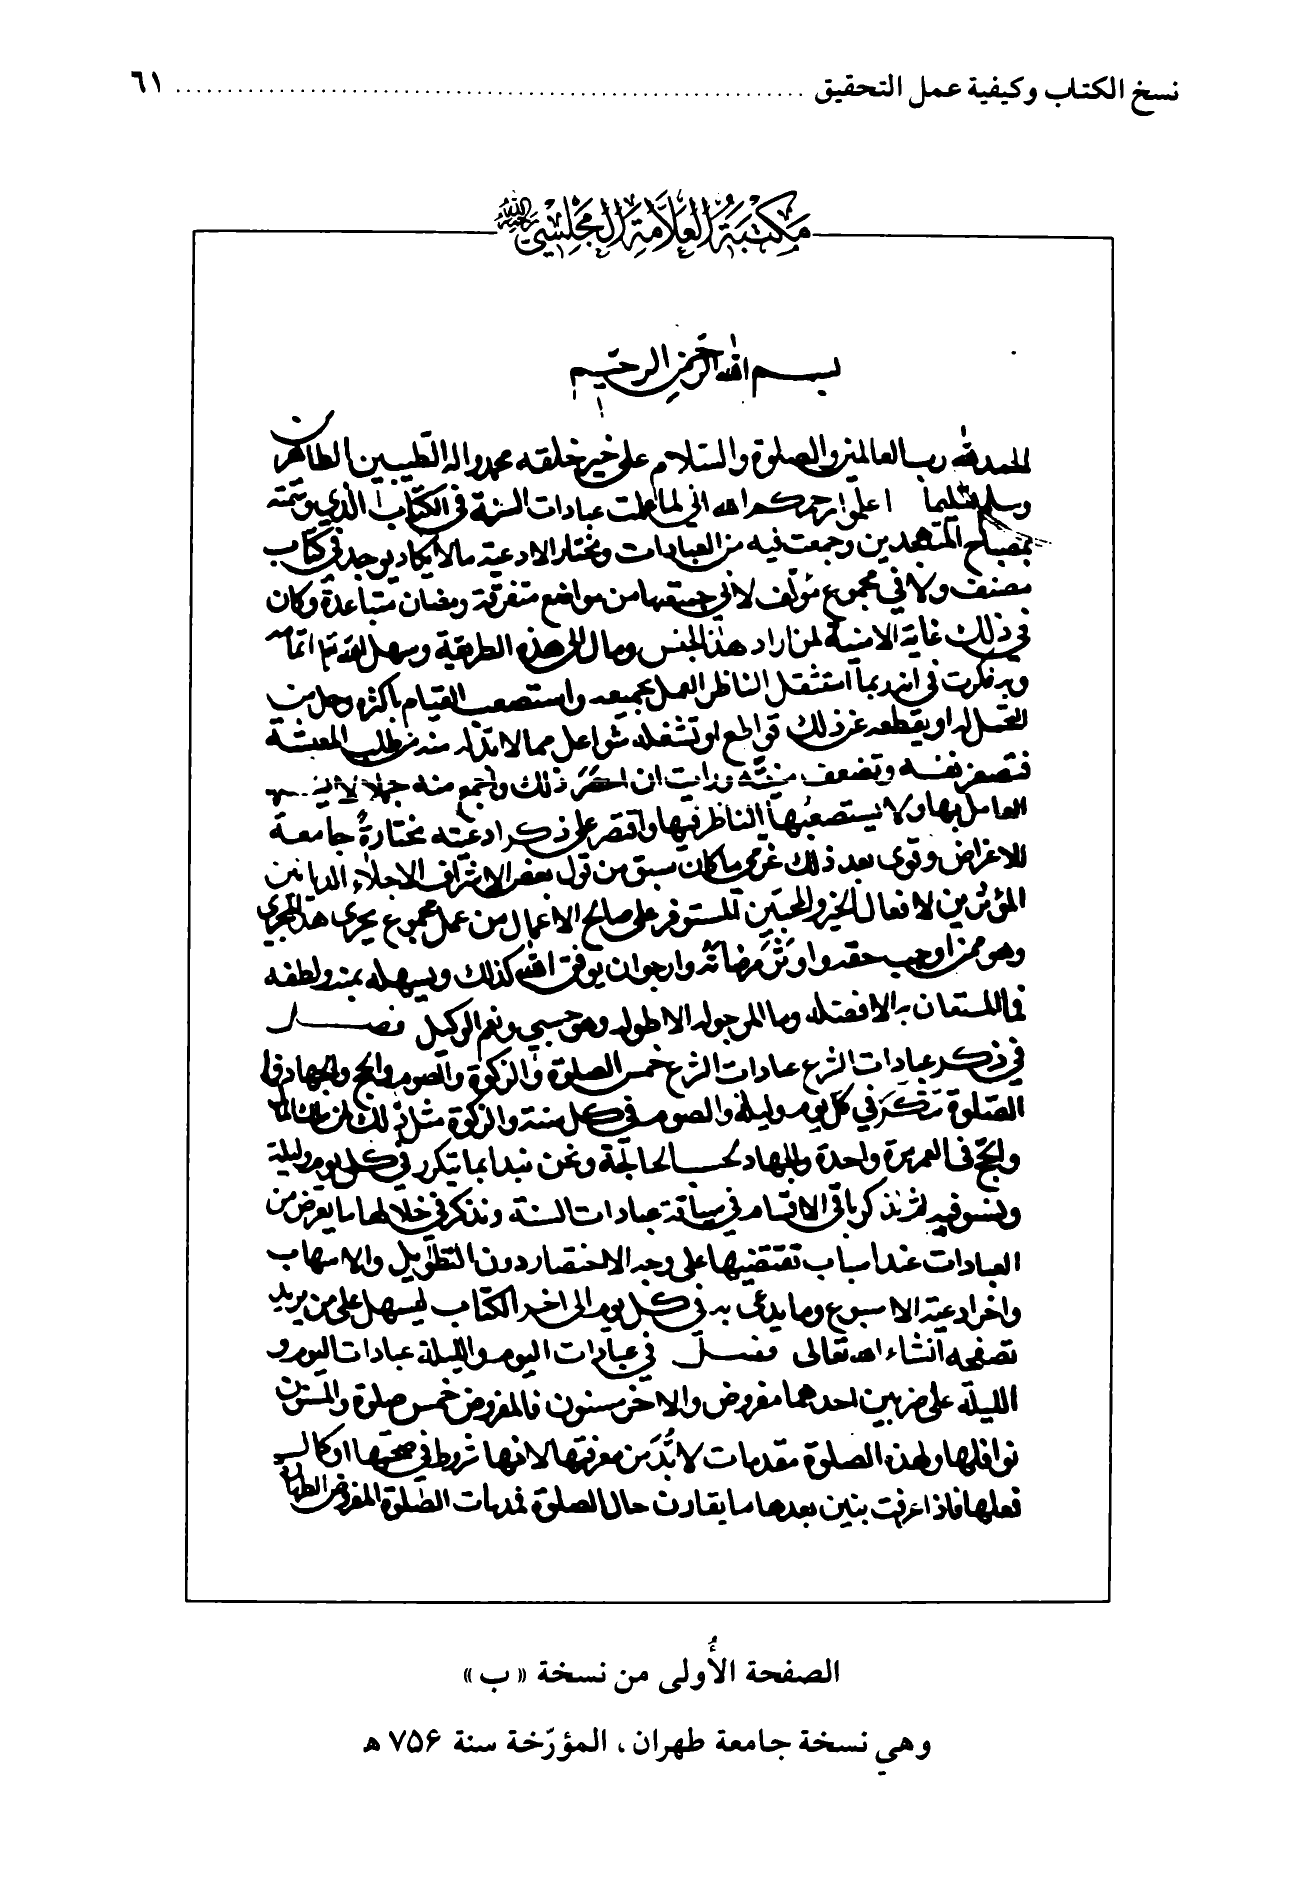 نسخ الكتاب وكيفية عمل التحقيق ........................................ ٦١
مكتبة العلامة المجلسي رحمه الله
بسم الله الرحمن الرحيم
الحمد لله رب العالمين والصلوة والسلام على خير خلقه محمد واله الطيبين الطاهرين
وسلم تسليما اعلموا رحمكم الله اني لما عملت عبادات السنة في الكتاب الذي وسمته
بمصباح المتهجدين وجمعت فيه من العبادات ومختار الادعية ما لا يكاد يوجد في كتاب
مصنف ولا في مجموع مؤلف لاني جمعتها من مواضع متفرقة ومضان متباعدة وكان
في ذلك غاية الامنية لمن اراد هذا الجنس ومال الى هذه الطريقة وسهل الله تعالى اتمامه
وبه فكرت في انه ربما استثقل الناظر العمل بجميعه واستصعب القيام باكثره وحل من
التحمل له او يقطعه عن ذلك قواطع او تشغله شواغل مما لا بد له منه من طلب المعيشة
فتصغر نفسه وتضعف منته ورايت ان اختصر ذلك واجمع منه جملا لا
العامل بها ولا يستصعبها الناظر فيها واقتصر على ذكر ادعية مختارة جامعة
للاغراض وقوى بعد ذلك عزمي ما كان سبق من قول بعض الاشراف الاجلاء الديانين
المؤثرين لافعال الخير والمحبين للتوفر على صالح الاعمال من عمل مجموع يجرى هذا المجرى
وهو ممن اوجب حقه واوثر مرضاته وارجو ان يوفق الله لذلك ويسهله بمنه ولطفه
فما المستعان به الا فضله وما المرجو له الا طوله وهو حسبي ونعم الوكيل فصل
في ذكر عبادات الشرع عبادات الشرع خمس الصلوة والزكوة والصوم والحج والجهاد فا
الصلوة تتكرر في كل يوم وليلة والصوم في كل سنة والزكوة مثل ذلك لمن ملك المال
والحج في العمر مرة واحدة والجهاد بحسب الحاجة ونحن نبدا بما يتكرر في كل يوم وليلة
ونستوفيه ثم نذكر باقي الاقسام في سياقة عبادات السنة ونذكر في خلالها ما يعرض من
العبادات عند اسباب تقتضيها على وجه الاختصار دون التطويل والاسهاب
واخر ادعية الاسبوع وما يدعى به في كل يوم الى اخر الكتاب ليسهل على من يريد
تصفحه انشاء الله تعالى فصل في عبادات اليوم والليلة عبادات اليوم و
الليلة على ضربين احدهما مفروض والاخر مسنون فالمفروض خمس صلوة والمسنون
نوافلها ولهذه الصلوة مقدمات لا بد من معرفتها لانها شروط في صحتها او كمال
فعلها فاذا عرفت بنين بعدها ما يقارن حال الصلوة فمقدمات الصلوة المفروض الطهارة
الصفحة الأُولى من نسخة « ب »
وهي نسخة جامعة طهران ، المؤرّخة سنة ٧٥٦ هـ